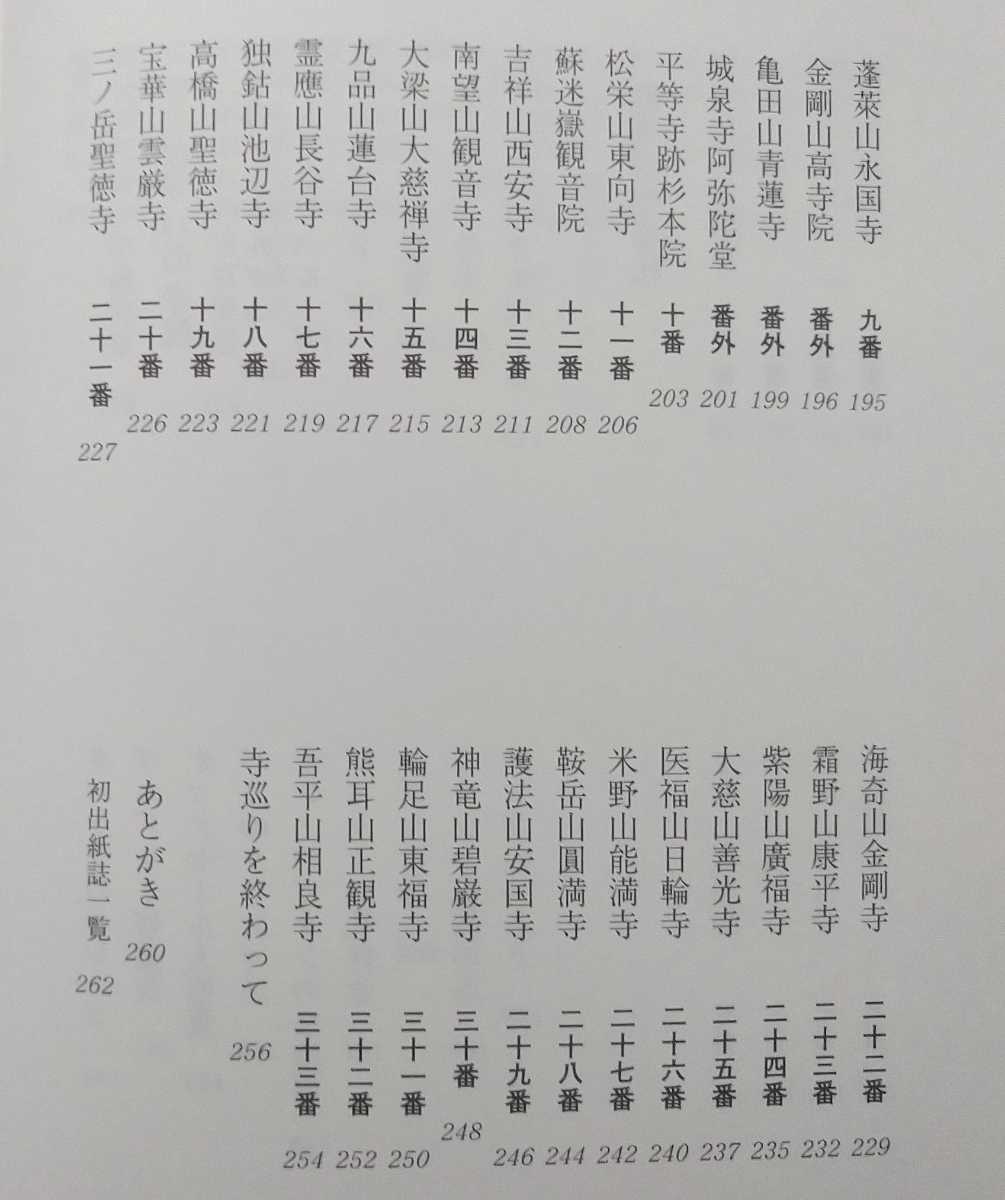 蓬萊山永国寺 九番 195
金剛山高寺院 番外 196
亀田山青蓮寺 番外 199
城泉寺阿弥陀堂 番外 201
平等寺跡杉本院 十番 203
松栄山東向寺 十一番 206
蘇迷嶽観音院 十二番 208
吉祥山西安寺 十三番 211
南望山観音寺 十四番 213
大梁山大慈禅寺 十五番 215
九品山蓮台寺 十六番 217
霊應山長谷寺 十七番 219
独鈷山池辺寺 十八番 221
高橋山聖徳寺 十九番 223
宝華山雲厳寺 二十番 226
三ノ岳聖徳寺 二十一番 227
海奇山金剛寺 二十二番 229
霜野山康平寺 二十三番 232
紫陽山廣福寺 二十四番 235
大慈山善光寺 二十五番 237
医福山日輪寺 二十六番 240
米野山能満寺 二十七番 242
鞍岳山圓満寺 二十八番 244
護法山安国寺 二十九番 246
神竜山碧巌寺 三十番 248
輪足山東福寺 三十一番 250
熊耳山正観寺 三十二番 252
吾平山相良寺 三十三番 254
寺巡りを終わって 256
あとがき 260
初出紙誌一覧 262